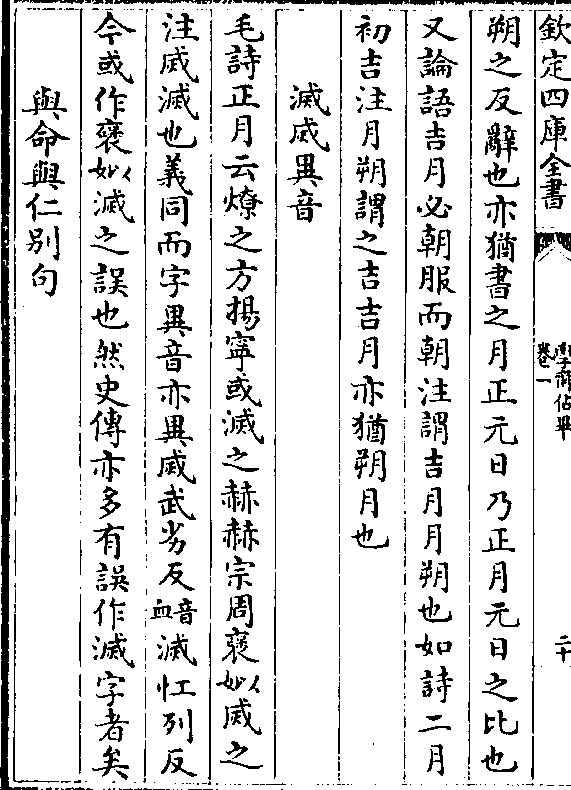 欽定四庫全書
學齋佔畢
卷一
二十
朔之反辭也亦猶書之月正元日乃正月元日之比也
又論語吉月必朝服而朝注謂吉月月朔也如詩二月
初吉注月朔謂之吉吉月亦猶朔月也
滅烕異音
毛詩正月云燎之方揚寧或滅之赫赫宗周褒姒烕之
注烕滅也義同而字異音亦異烕武劣反音血滅忙列反
今或作褒姒滅之誤也然史傳亦多有誤作滅字者矣
與命與仁别句